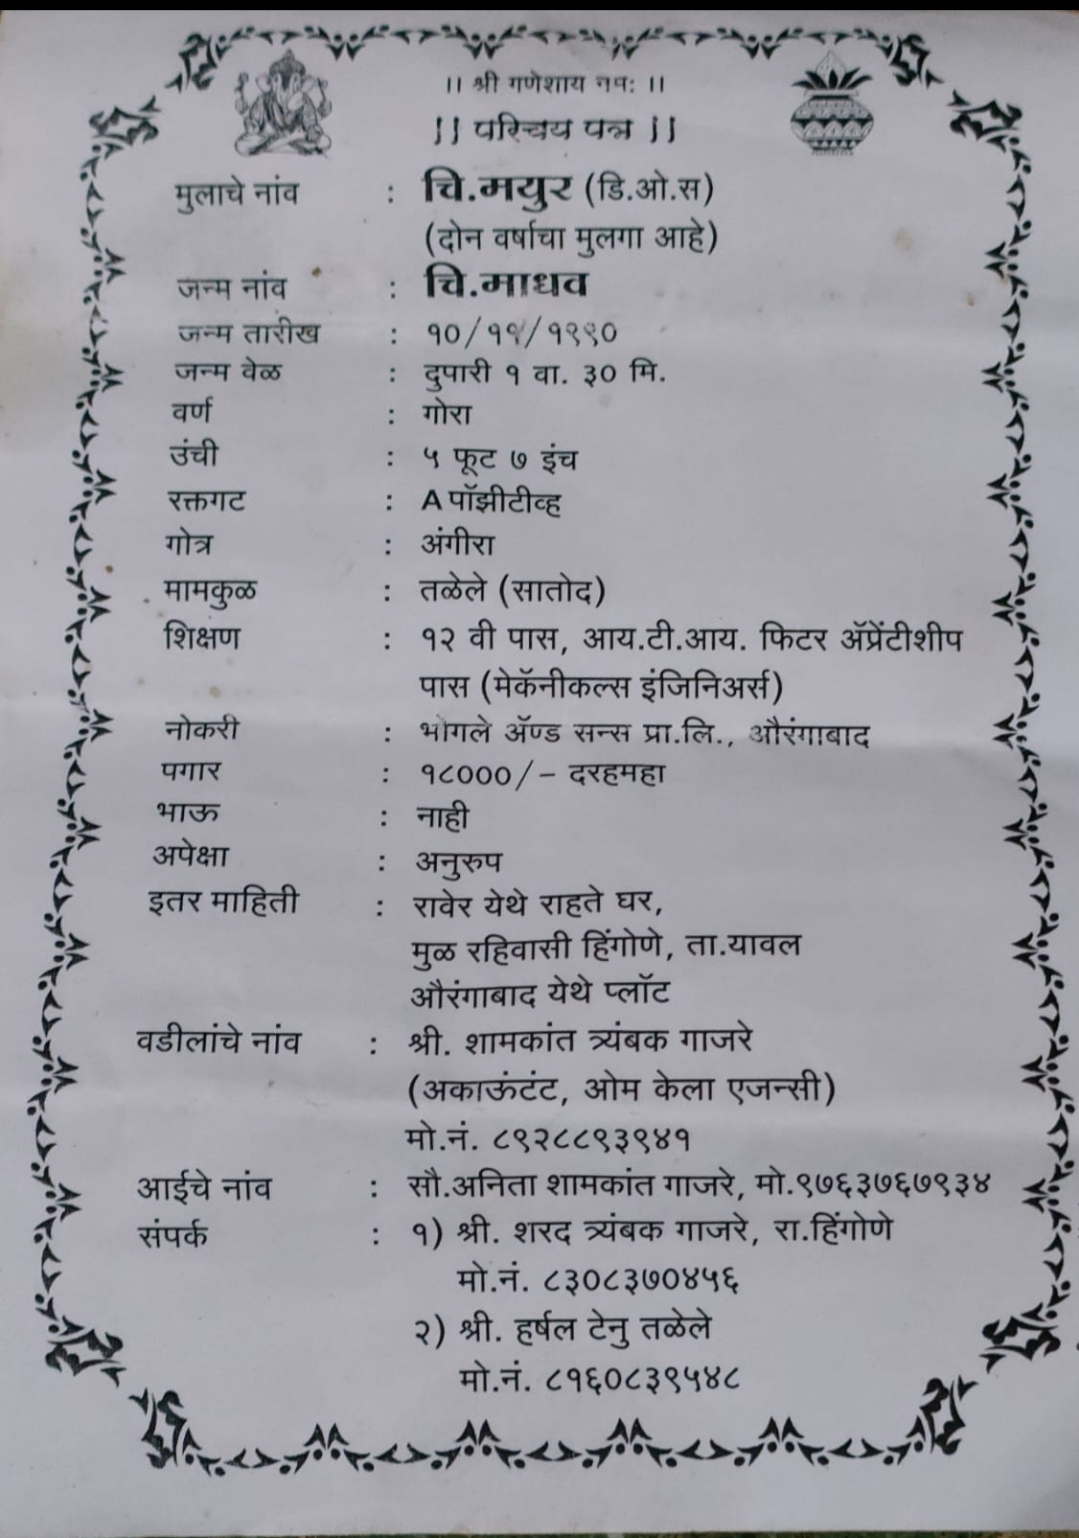 ।। श्री गणेशाय नम: ।।
।। परिचय पत्र ।।
मुलाचे नांव : चि.मयुर (डि.ओ.स)
(दोन वर्षाचा मुलगा आहे)
जन्म नांव : चि.माधव
जन्म तारीख : १०/११/१९९०
जन्म वेळ : दुपारी १ वा. ३० मि.
वर्ण : गोरा
उंची : ५ फूट ७ इंच
रक्तगट : A पॉझीटीव्ह
गोत्र : अंगीरा
मामकुळ : तळेले (सातोद)
शिक्षण : १२ वी पास, आय.टी.आय. फिटर ॲप्रेंटीशीप
पास (मेकॅनीकल्स इंजिनिअर्स)
नोकरी : भोगले ॲण्ड सन्स प्रा.लि., औरंगाबाद
पगार : १८०००/- दरहमहा
भाऊ : नाही
अपेक्षा : अनुरुप
इतर माहिती : रावेर येथे राहते घर,
मुळ रहिवासी हिंगोणे, ता.यावल
औरंगाबाद येथे प्लॉट
वडीलांचे नांव : श्री. शामकांत त्र्यंबक गाजरे
(अकाऊंटंट, ओम केला एजन्सी)
मो.नं. ८९२८८९३९४१
आईचे नांव : सौ.अनिता शामकांत गाजरे, मो.९७६३७६७९३४
संपर्क : १) श्री. शरद त्र्यंबक गाजरे, रा.हिंगोणे
मो.नं. ८३०८३७०४५६
२) श्री. हर्षल टेनु तळेले
मो.नं. ८१६०८३९५४८